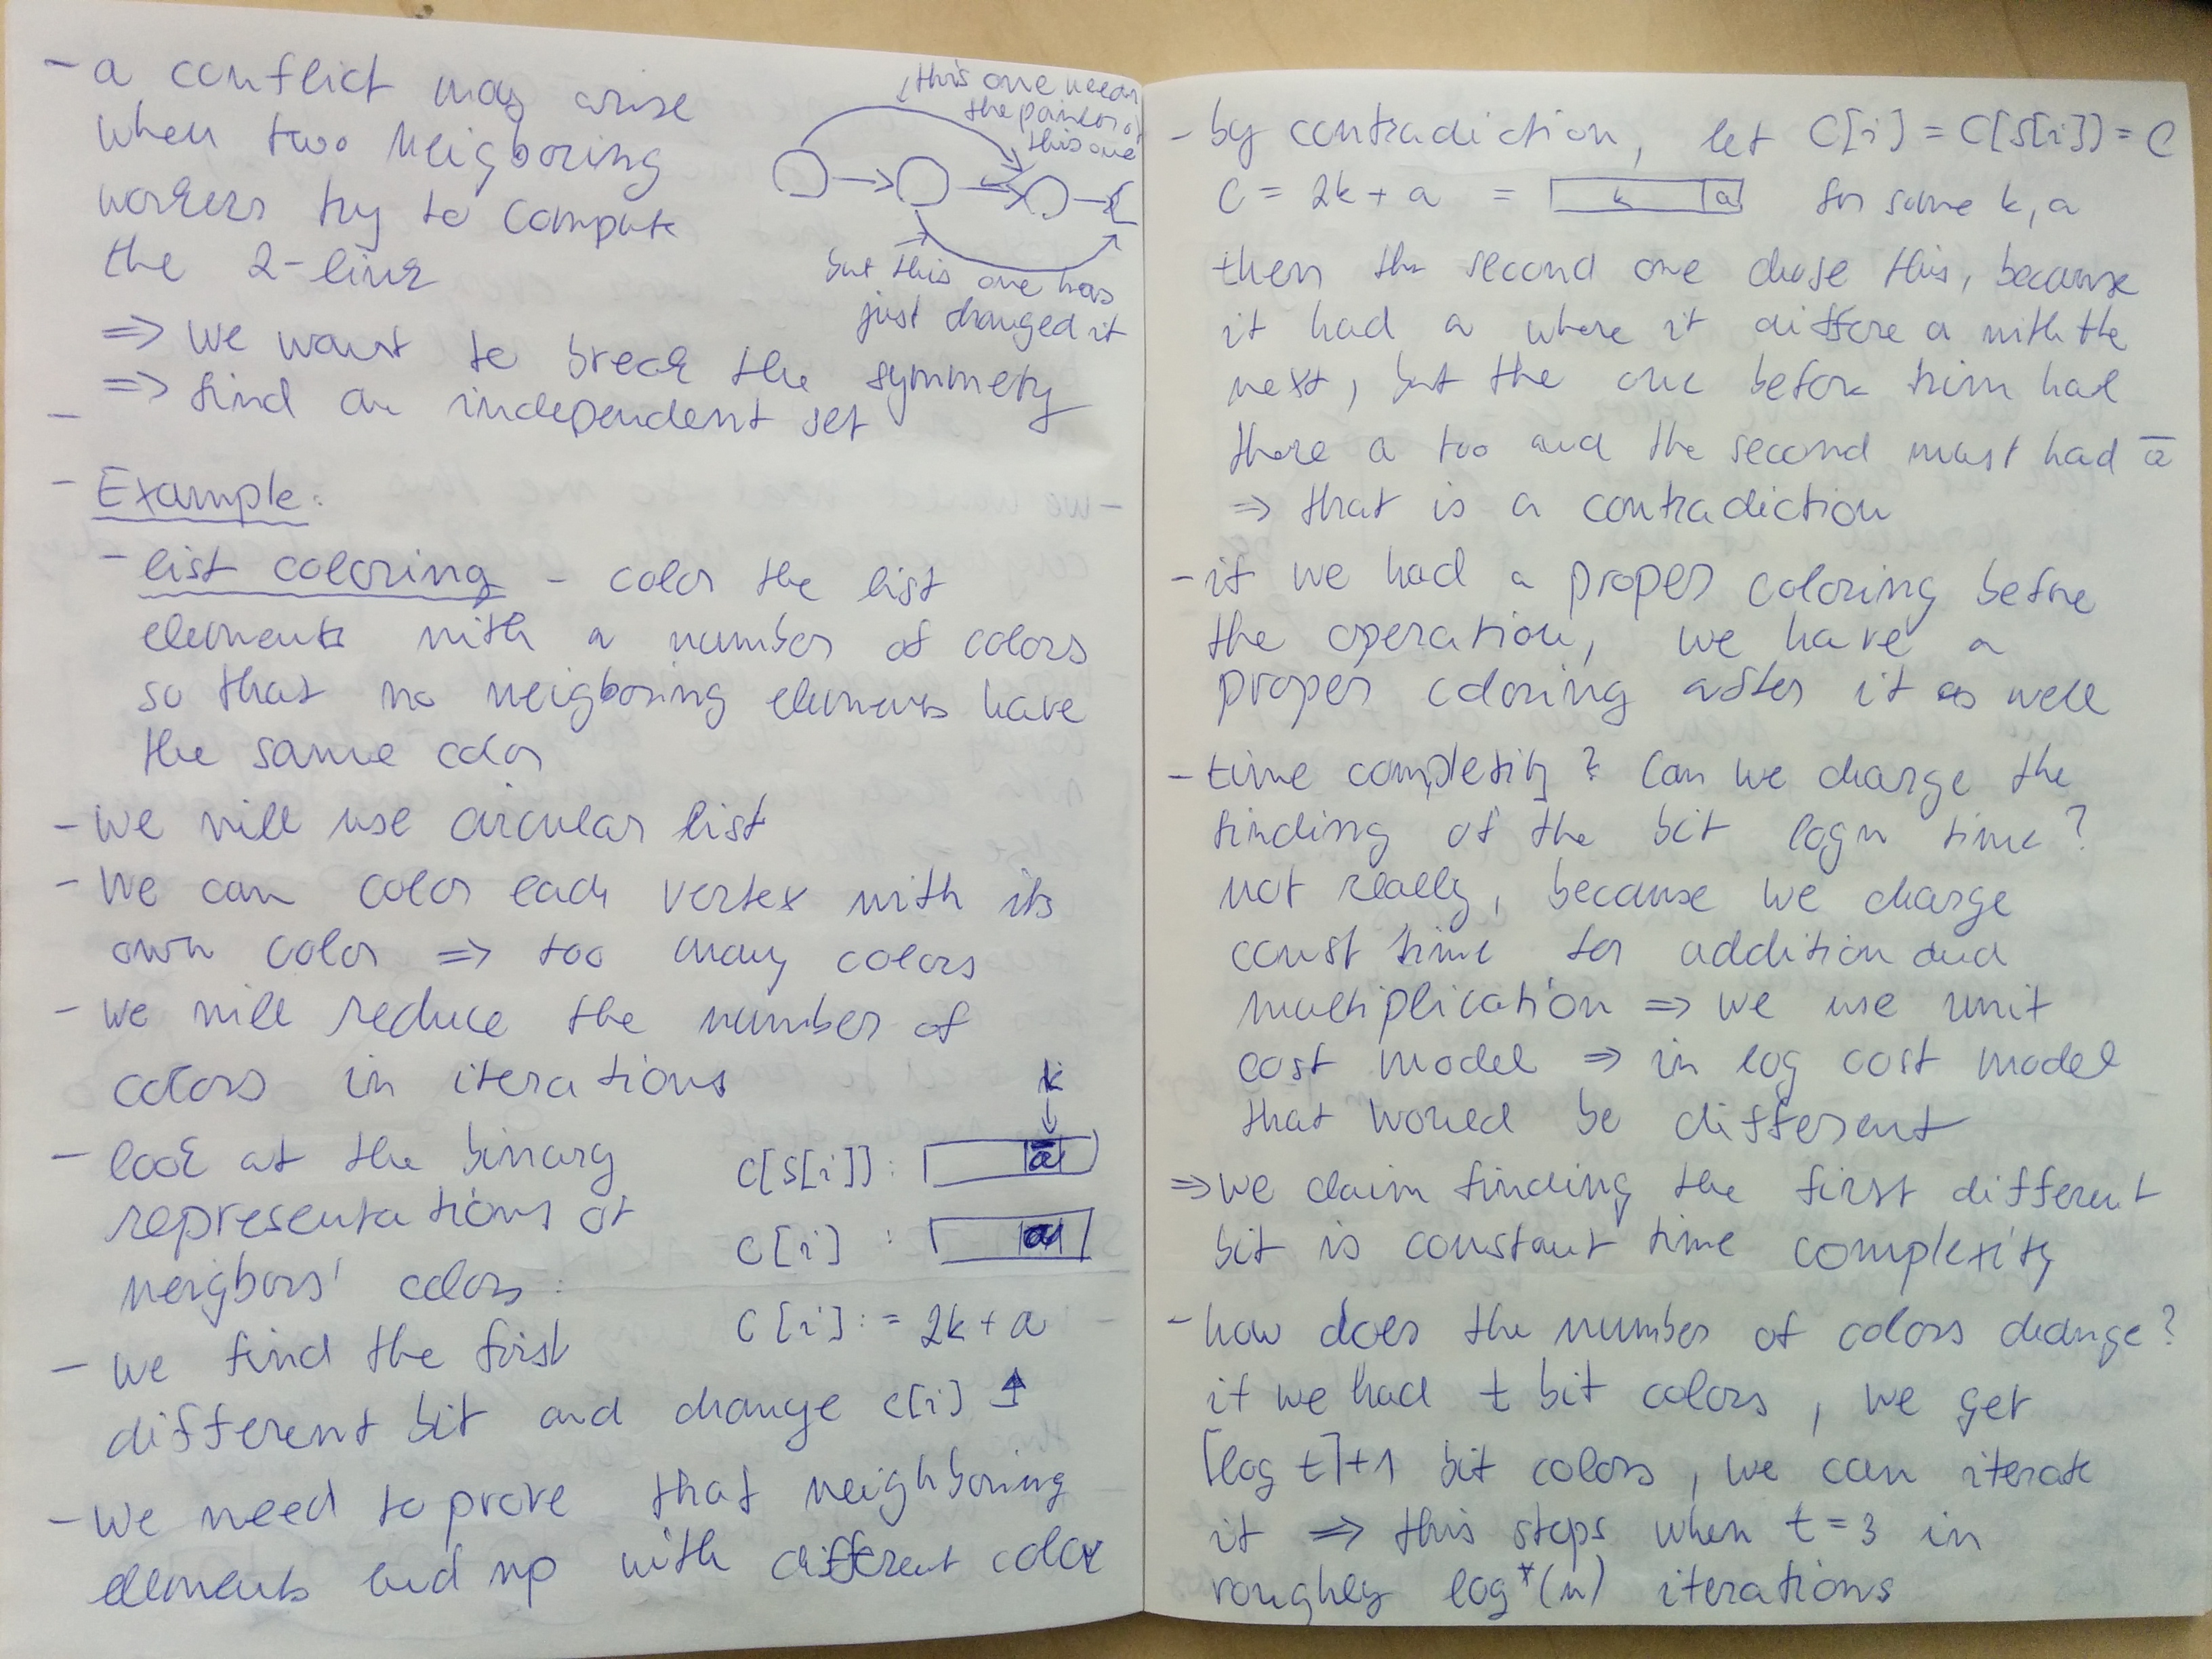 - a conflict may arise
when two neigboring
workers try to compute
the 2-link
this one needs
the pointer of
this one
but this one has
just changed it
=> we want to break the symmetry
=> find an independent set
-
- Example:
- list coloring - color the list
elements with a number of colors
so that no neigboring elements have
the same color
- we will use circular list
- we can color each vertex with its
own color => too many colors
- we will reduce the number of
colors in iterations
- look at the binary
representations of
neigbors' colors:
k
c[s[i]]: a̅
c[i] : a
c[i] := 2k + a
- we find the first
different bit and change c[i] ↑
- we need to prove that neighboring
elements end up with different color
- by contradiction, let C[i] = C[S[i]] = C
C = 2k + a = k a for some k, a
then the second one chose this, because
it had a where it differe a with the
next, but the one before him had
there a too and the second must had a̅
=> that is a contradiction
- if we had a proper coloring before
the operation, we have a
proper coloring after it as well
- time complexity? Can we charge the
finding of the bit log n time?
not really, because we charge
const time for addition and
multiplication => we use unit
cost model => in log cost model
that would be different
=> we claim finding the first different
bit is constant time complexity
- how does the number of colors change?
if we had t bit colors, we get
⌈log t⌉+1 bit colors, we can iterate
it => this stops when t=3 in
roughly log*(n) iterations